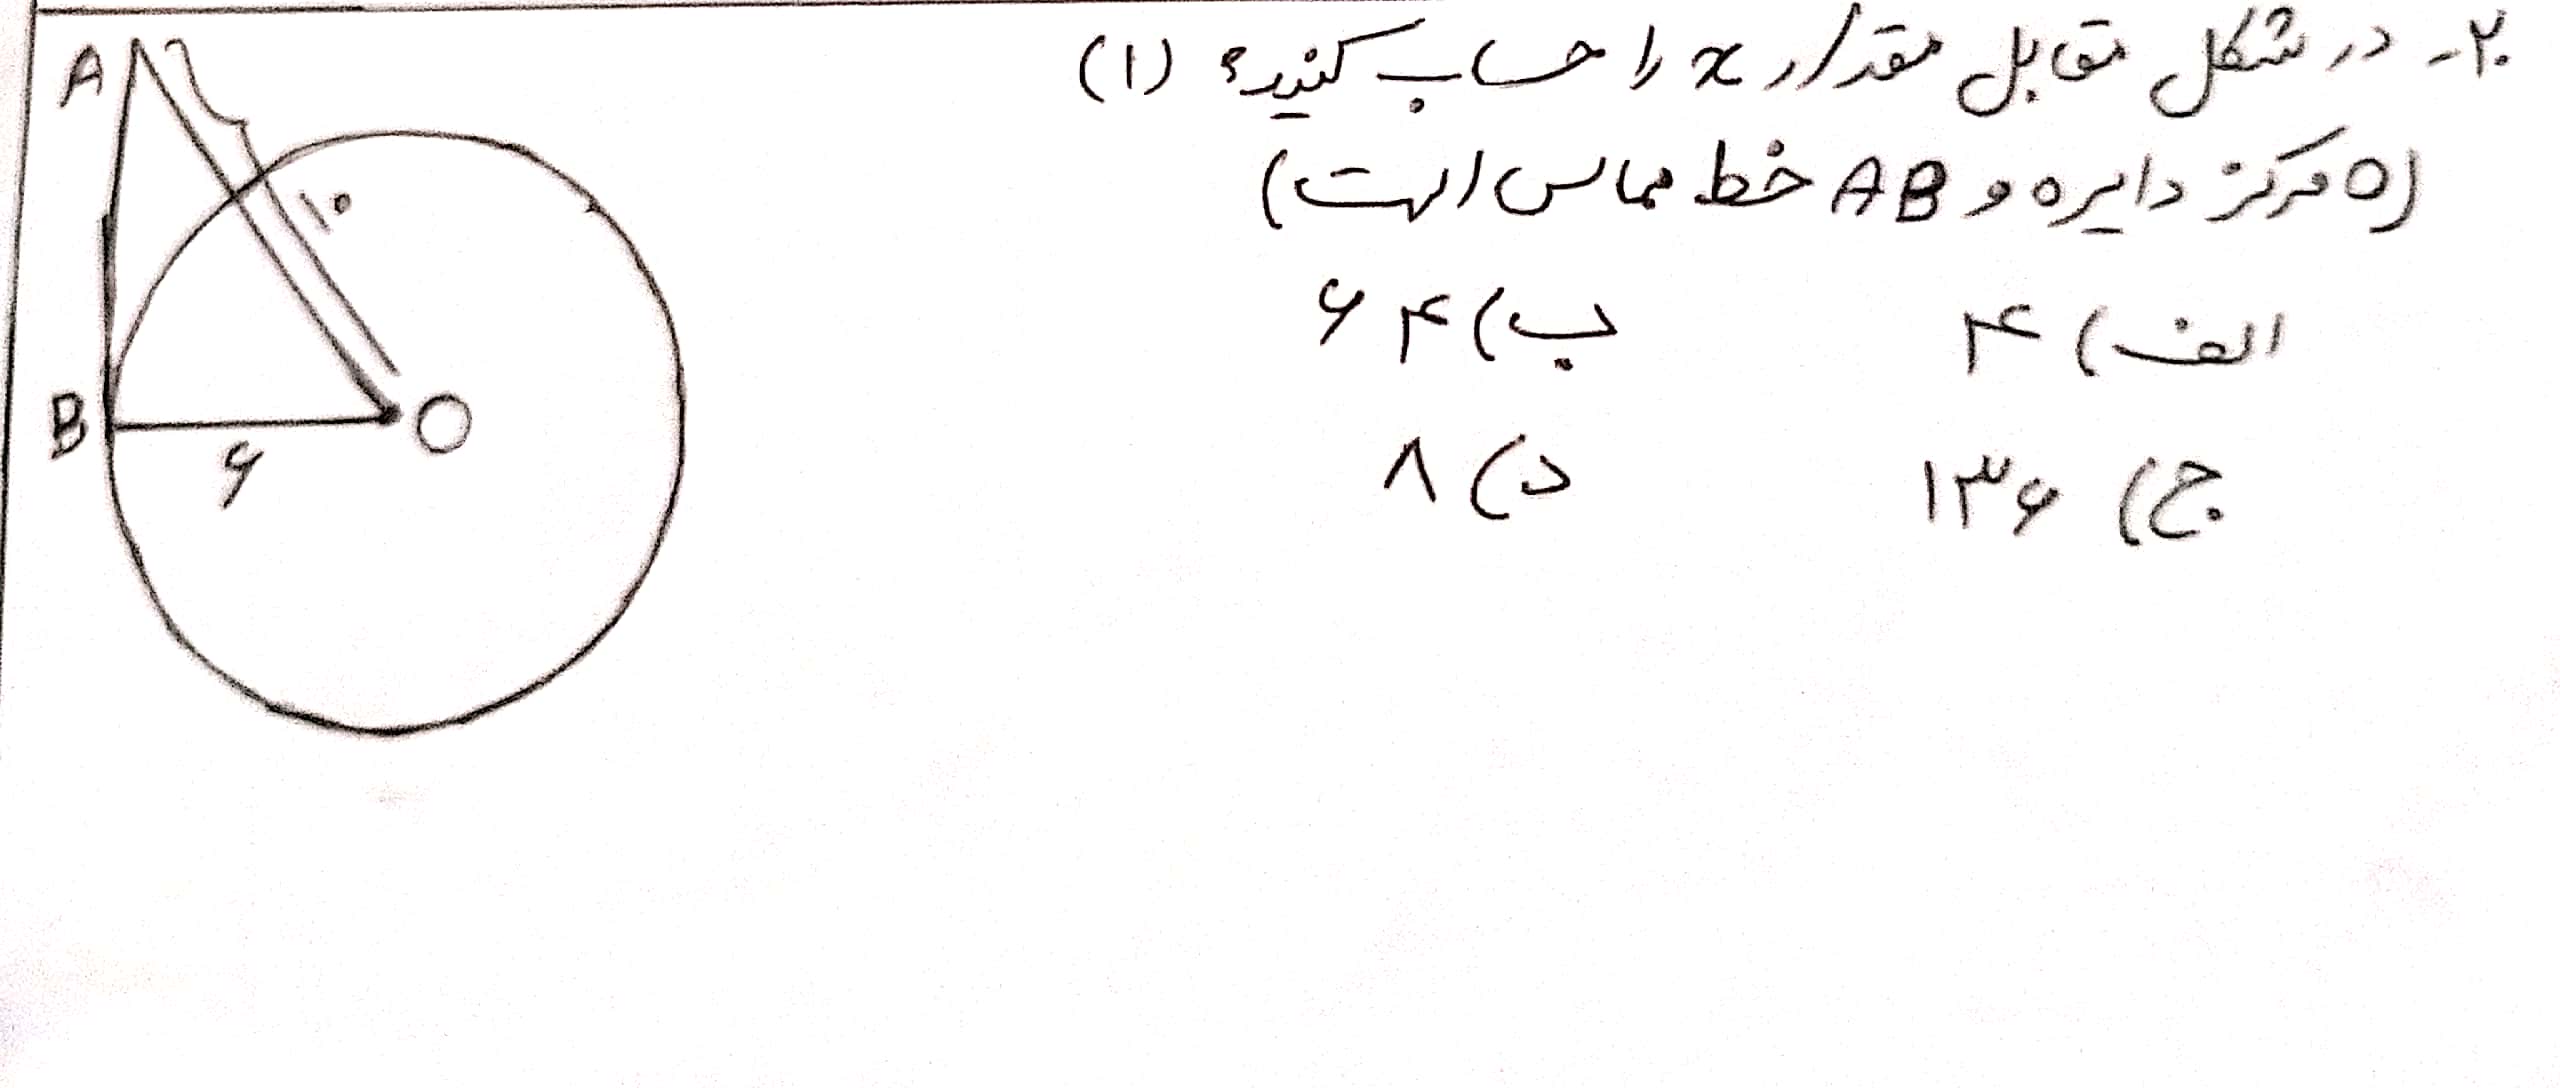 ۲۰- در شکل مقابل مقدار x را حساب کنید؟ (۱)
(O مرکز دایره و AB خط مماس است)
الف) ۴ ب) ۶۴
ج) ۱۳۶ د) ۸
A
۱۰
B
O
۶